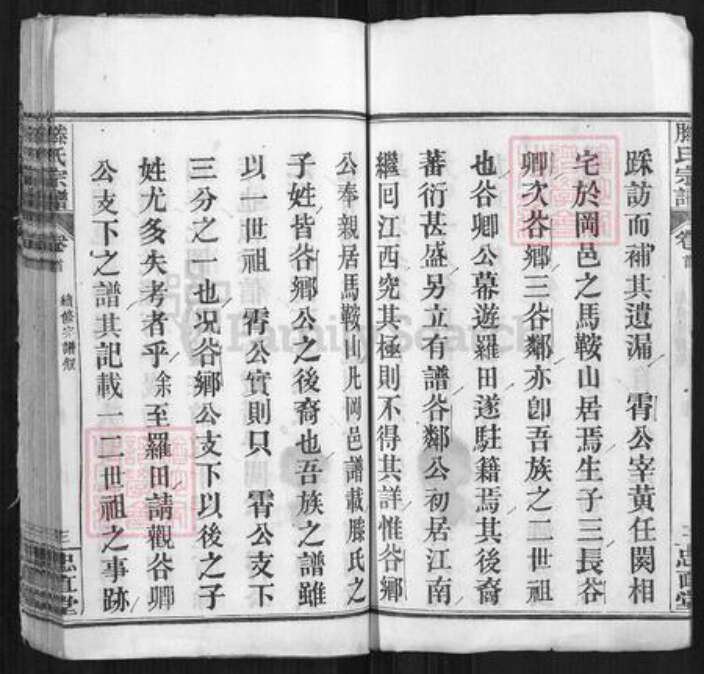 踩訪而補其遺漏　霄公宰黄任闋相
宅於岡邑之馬鞍山居焉生子三長谷
卿次谷鄉三谷鄰亦卽吾族之二世祖
也谷卿公幕遊羅田遂駐籍焉其後裔
蕃衍甚盛另立有譜谷鄰公初居江南
繼囘江西究其極則不得其詳惟谷鄉
公奉親居馬鞍山凡岡邑譜載滕氏之
子姓皆谷鄉公之後裔也吾族之譜雖
以一世祖　霄公實則只　霄公支下
三分之一也况谷鄉公支下以後之子
姓尤多失考者乎余至羅田請觀谷卿
公支下之譜其記載一二世祖之事跡
滕氏宗譜
卷首
續修宗譜叙
三
忠直堂
滕氏宗譜
卷首
三
忠直堂
FamilySearch